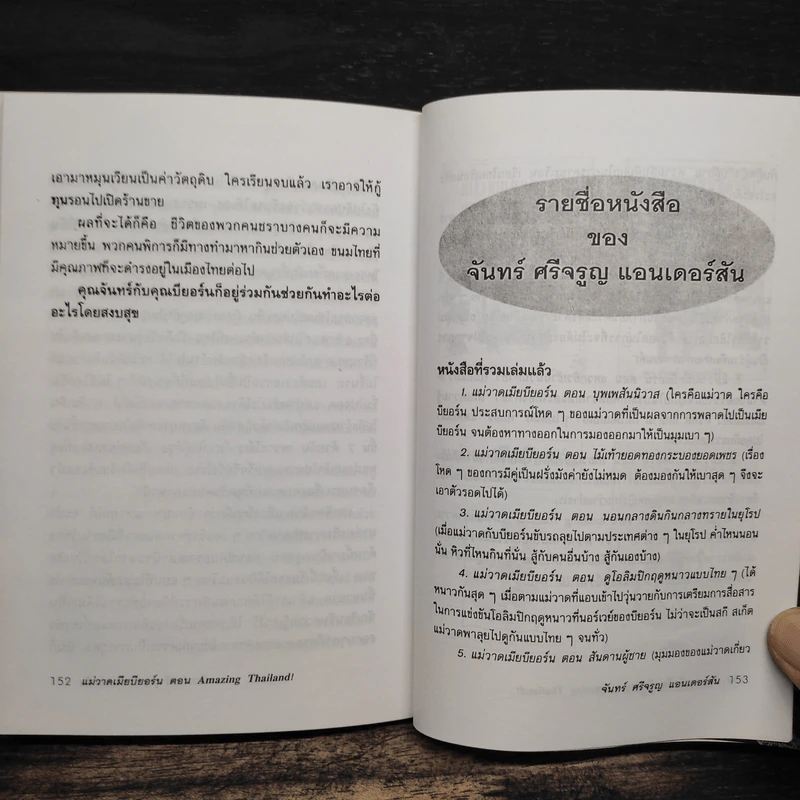 เอามาหมุนเวียนเป็นค่าวัตถุดิบ ใครเรียนจบแล้ว เราอาจให้กู้
ทุนรอนไปเปิดร้านขาย
ผลที่จะได้ก็คือ ชีวิตของพวกคนชราบางคนก็จะมีความ
หมายขึ้น พวกคนพิการก็มีทางทำมาหากินช่วยตัวเอง ขนมไทยที่
มีคุณภาพก็จะดำรงอยู่ในเมืองไทยต่อไป
คุณจันทร์กับคุณบียอร์นก็อยู่ร่วมกันช่วยกันทำอะไรต่อ
อะไรโดยสงบสุข
152 แม่วาดเมียบียอร์น ตอน Amazing Thailand!
รายชื่อหนังสือ
ของ
จันทร์ ศรีจรูญ แอนเดอร์สัน
หนังสือที่รวมเล่มแล้ว
1. แม่วาดเมียบียอร์น ตอน บุพเพสันนิวาส (ใครคือแม่วาด ใครคือ
บียอร์น ประสบการณ์โหด ๆ ของแม่วาดที่เป็นผลจากการพลาดไปเป็นเมีย
บียอร์น จนต้องหาทางออกในการมองออกมาให้เป็นมุมเบา ๆ)
2. แม่วาดเมียบียอร์น ตอน ไม้เท้ายอดทองกระบองยอดเพชร (เรื่อง
โหด ๆ ของการมีคู่เป็นฝรั่งมังค่ายังไม่หมด ต้องมองกันให้เบาสุด ๆ จึงจะ
เอาตัวรอดไปได้)
3. แม่วาดเมียบียอร์น ตอน นอนกลางดินกินกลางทรายในยุโรป
(เมื่อแม่วาดกับบียอร์นขับรถลุยไปตามประเทศต่าง ๆ ในยุโรป ค่ำไหนนอน
นั่น หิวที่ไหนกินที่นั่น สู้กับคนอื่นบ้าง สู้กันเองบ้าง)
4. แม่วาดเมียบียอร์น ตอน ดูโอลิมปิกฤดูหนาวแบบไทย ๆ (ได้
หนาวกันสุด ๆ เมื่อตามแม่วาดที่แอบเข้าไปวุ่นวายกับการเตรียมการสื่อสาร
ในการแข่งขันโอลิมปิกฤดูหนาวที่นอร์เวย์ของบียอร์น ไม่ว่าจะเป็นสกี สเก็ต
แม่วาดพาลุยไปดูกันแบบไทย ๆ จนทั่ว)
5. แม่วาดเมียบียอร์น ตอน สันดานผู้ชาย (มุมมองของแม่วาดเกี่ยว
จันทร์ ศรีจรูญ แอนเดอร์สัน 153